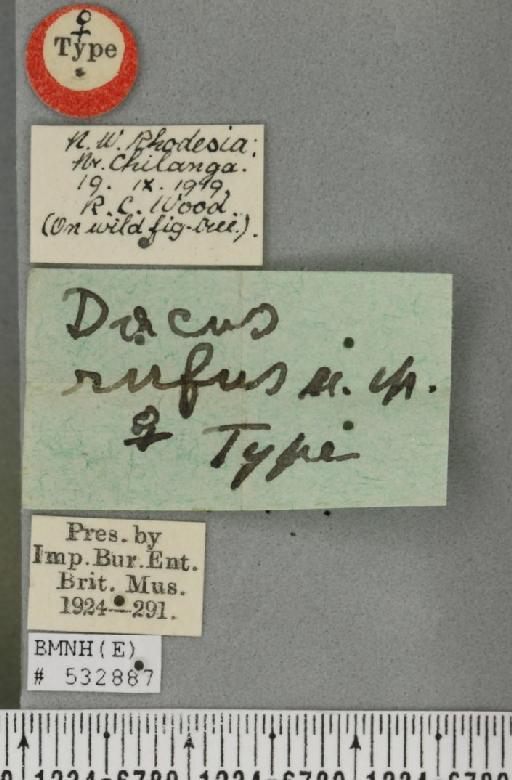 ♀
Type
N.W. Rhodesia:
Nr. Chilanga.
19. IX. 1919,
R. C. Wood
(On wild fig-tree).
Dacus
rufus n. sp.
♀ Type
Pres. by
Imp.Bur.Ent.
Brit. Mus.
1924—291.
BMNH(E)
# 532887